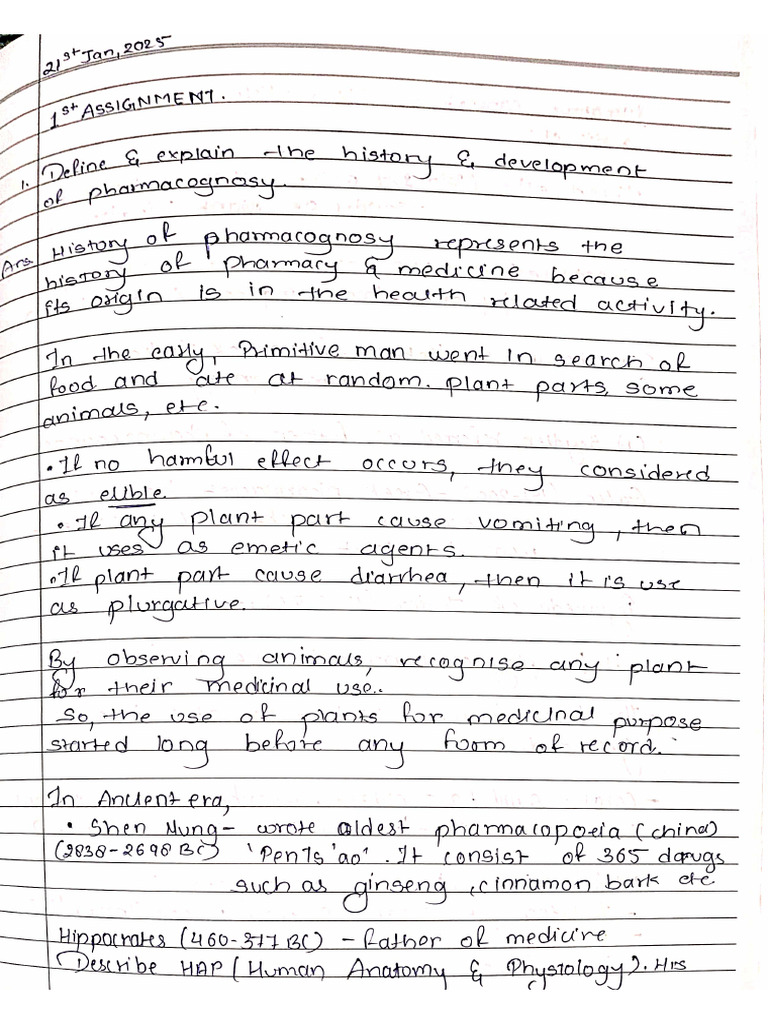 21st Jan, 2025
1st ASSIGNMENT.
1. Define & explain the history & development
of pharmacognosy.
Ans History of pharmacognosy represents the
history of pharmacy & medicine because
its origin is in the health related activity.
In the early, Primitive man went in search of
food and ate at random. plant parts, some
animals, etc.
• If no harmful effect occurs, they considered
as edible.
• If any plant part cause vomiting, then
it uses as emetic agents.
• If plant part cause diarrhea, then it is use
as plurgative.
By observing animals, recognise any plant
for their medicinal use..
So, the use of plants for medicinal purpose
started long before any form of record.
In Ancient era,
• Shen Nung - wrote oldest pharmacopoeia (china)
(2838-2698 BC) 'Pen Ts 'ao'. It consist of 365 drugs
such as ginseng, cinnamon bark etc
Hippocrates (460-377 BC) - father of medicine
Describe HAP (Human Anatomy & Physiology). His